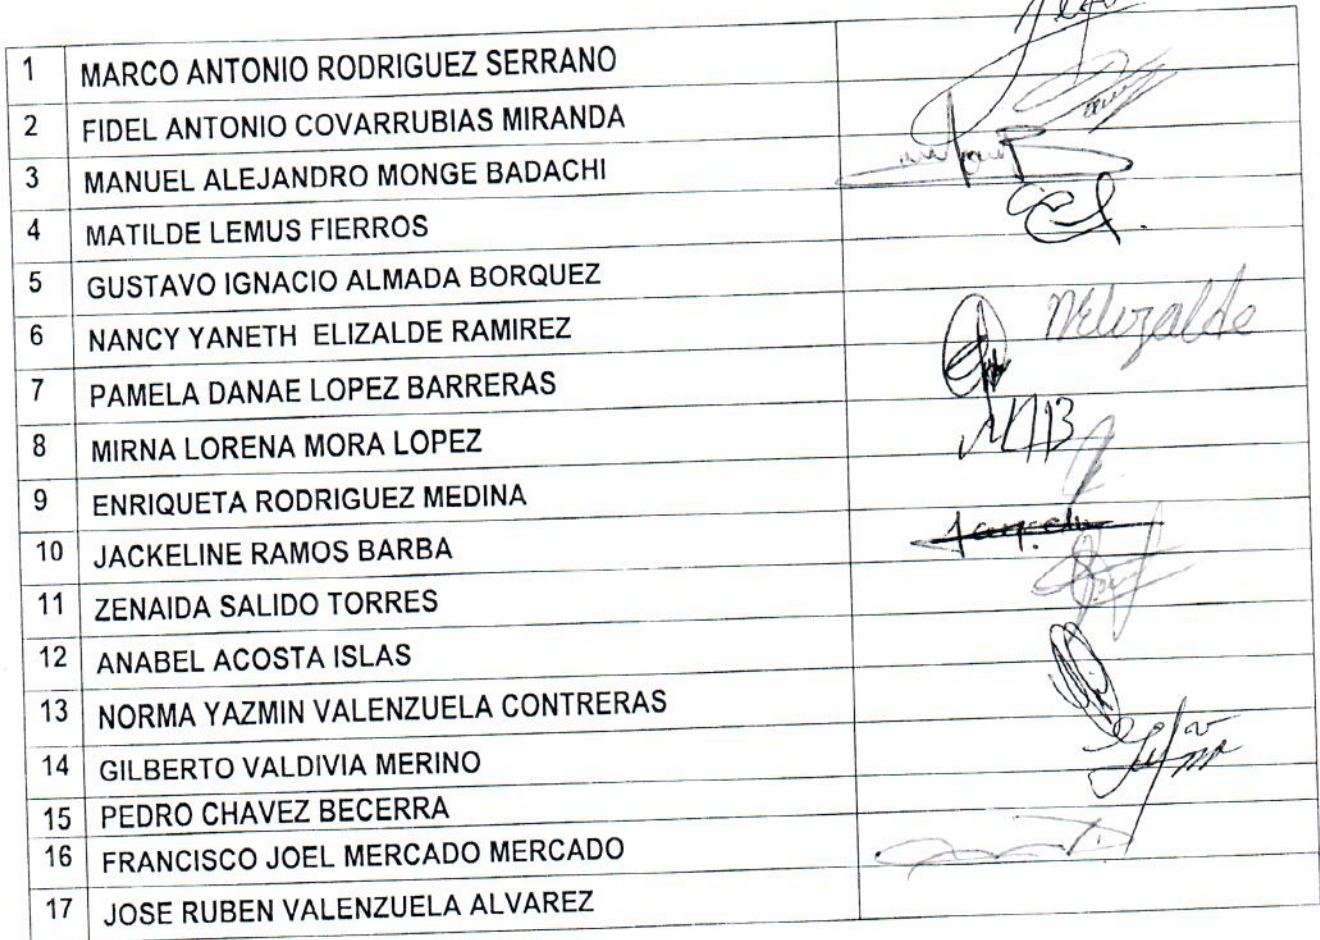 1 MARCO ANTONIO RODRIGUEZ SERRANO
2 FIDEL ANTONIO COVARRUBIAS MIRANDA
3 MANUEL ALEJANDRO MONGE BADACHI
4 MATILDE LEMUS FIERROS
5 GUSTAVO IGNACIO ALMADA BORQUEZ
6 NANCY YANETH ELIZALDE RAMIREZ NElizalde
7 PAMELA DANAE LOPEZ BARRERAS
8 MIRNA LORENA MORA LOPEZ
9 ENRIQUETA RODRIGUEZ MEDINA
10 JACKELINE RAMOS BARBA
11 ZENAIDA SALIDO TORRES
12 ANABEL ACOSTA ISLAS
13 NORMA YAZMIN VALENZUELA CONTRERAS
14 GILBERTO VALDIVIA MERINO
15 PEDRO CHAVEZ BECERRA
16 FRANCISCO JOEL MERCADO MERCADO
17 JOSE RUBEN VALENZUELA ALVAREZ